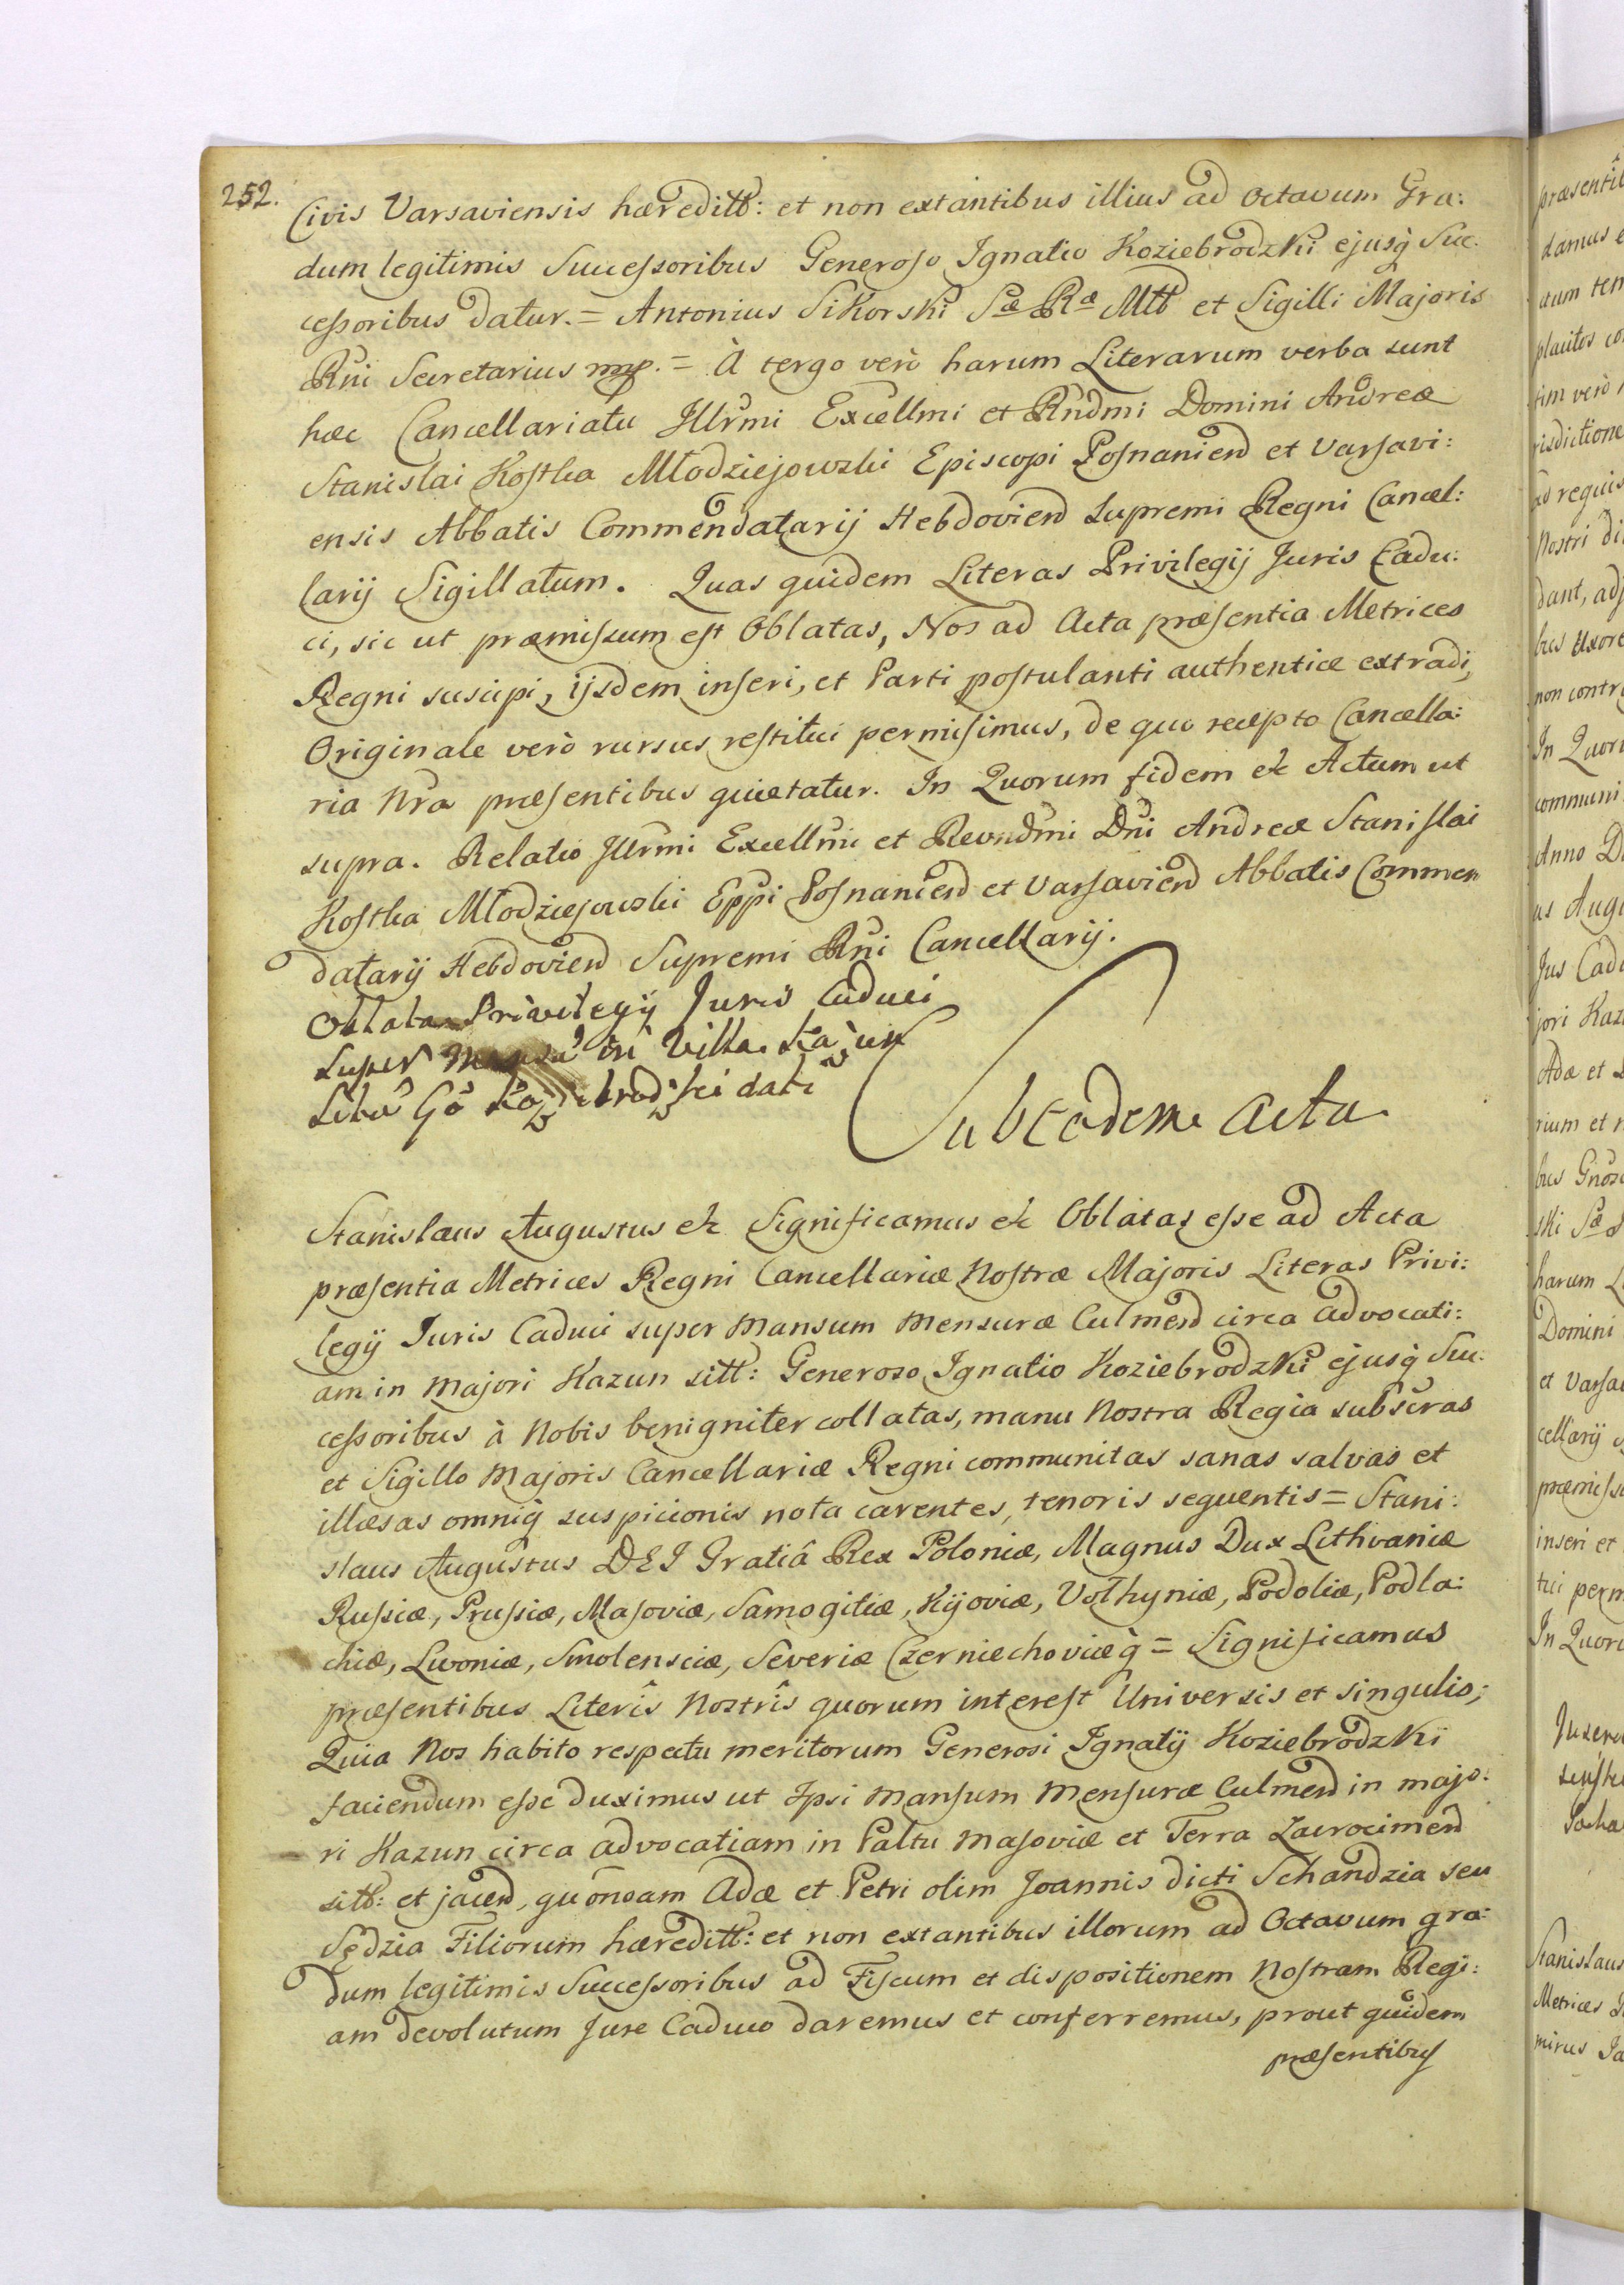 252.
Civis Varsaviensis hæreditt: et non extantibus illius ad Octavum Gra:
dum legitimis Successoribus Generoso Ignatio Koziebrodzki ejusq̀ Suc:
cessoribus datur. = Antonius Sikorski Sæ Ræ Mtt et Sigilli Majoris
Rni Secretarius mp. = À tergo verò harum Literarum verba sunt
hæc Cancellariatu Illrmi Excellmi et Rndmi Domini Andreæ
Stanislai Kostka Młodziejowski Episcopi Posnanien et Varsavi:
ensis Abbatis Commendatarij Hebdovien Supremi Regni Cancel:
larij Sigillatum. Quas quidem Literas Privilegij Juris Cadu:
ci, sic ut præmissum est Oblatas, Nos ad Acta præsentia Metrices
Regni suscipi, ijsdem inseri, et Parti postulanti authenticæ extradi,
Originale verò rursus restitui permisimus, de quo recepto Cancella:
ria Nra præsentibus quietatur. In Quorum fidem etc Actum ut
supra. Relatio Illrmi Excellmi et Revndmi Dni Andreæ Stanislai
Kostka Młodziejowski Eppi Posnanien et Varsavien Abbatis Commen
datarij Hebdovien Supremi Rni Cancellarij.
Oblata Privilegij Juris Caduci
super in Villa Kazun
Koziebrodzki dati
Sub eadem Acta
Stanislaus Augustus etc Significamus etc Oblatas esse ad Acta
præsentia Metrices Regni Cancellariæ Nostræ Majoris Literas Privi:
legij Juris Caduci super Mansum Mensuræ Culmen circa advocati:
am in Majori Kazun sitt: Generoso Ignatio Koziebrodzki ejusq̀ Suc:
cessoribus à Nobis benigniter collatas, manu Nostra Regia subscras
et Sigillo Majoris Cancellariæ Regni communitas sanas salvas et
illæsas omniq̀ suspicionis nota carentes, tenoris sequentis = Stani:
slaus Augustus DEI Gratiâ Rex Poloniæ, Magnus Dux Lithvaniæ
Russiæ, Prussiæ, Masoviæ, Samogitiæ, Kijoviæ, Volhyniæ, Podoliæ, Podla:
chiæ, Livoniæ, Smolensciæ, Severiæ Czerniechoviæq̀ = Significamus
præsentibus Literîs Nostrîs quorum interest Universis et singulis;
Quia Nos habito respectu meritorum Generosi Ignatij Koziebrodzkij
faciendum esse duximus ut Ipsi Mansum Mensuræ Culmen in majo:
ri Kazun circa advocatiam in Paltu Masoviæ et Terra Zacrocimen
sitt: et jacen, quondam Adæ et Petri olim Joannis dicti Schandzia seu
Sędzia Filiorum hæreditt: et non extantibus illorum ad Octavum gra:
dum legitimis Successoribus ad Fiscum et dispositionem Nostram Regi:
am devolutum Jure Caduco daremus et conferremus, prout quidem
præsentibus